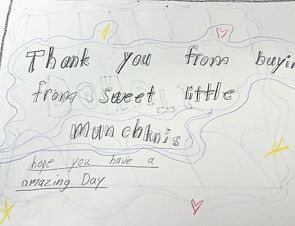 Thank you from buyin
from sweet little
Munchkins
hope you have a
amazing Day